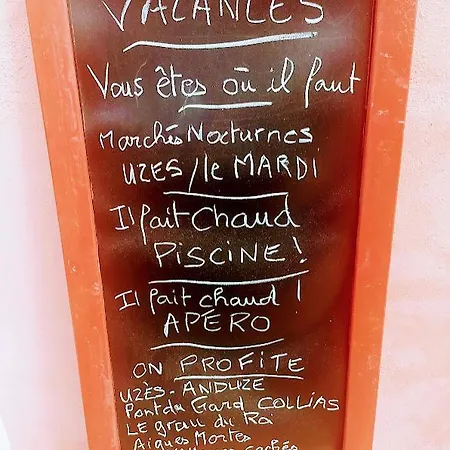 VACANCES
Vous êtes où il faut
Marchés Nocturnes
UZES/le MARDI
Il fait chaud
PISCINE!
Il fait chaud!
APERO
ON PROFITE
UZÈS-ANDUZE
Pont du Gard COLLIAS
LE grau du Roi
Aigues Mortes
cachés